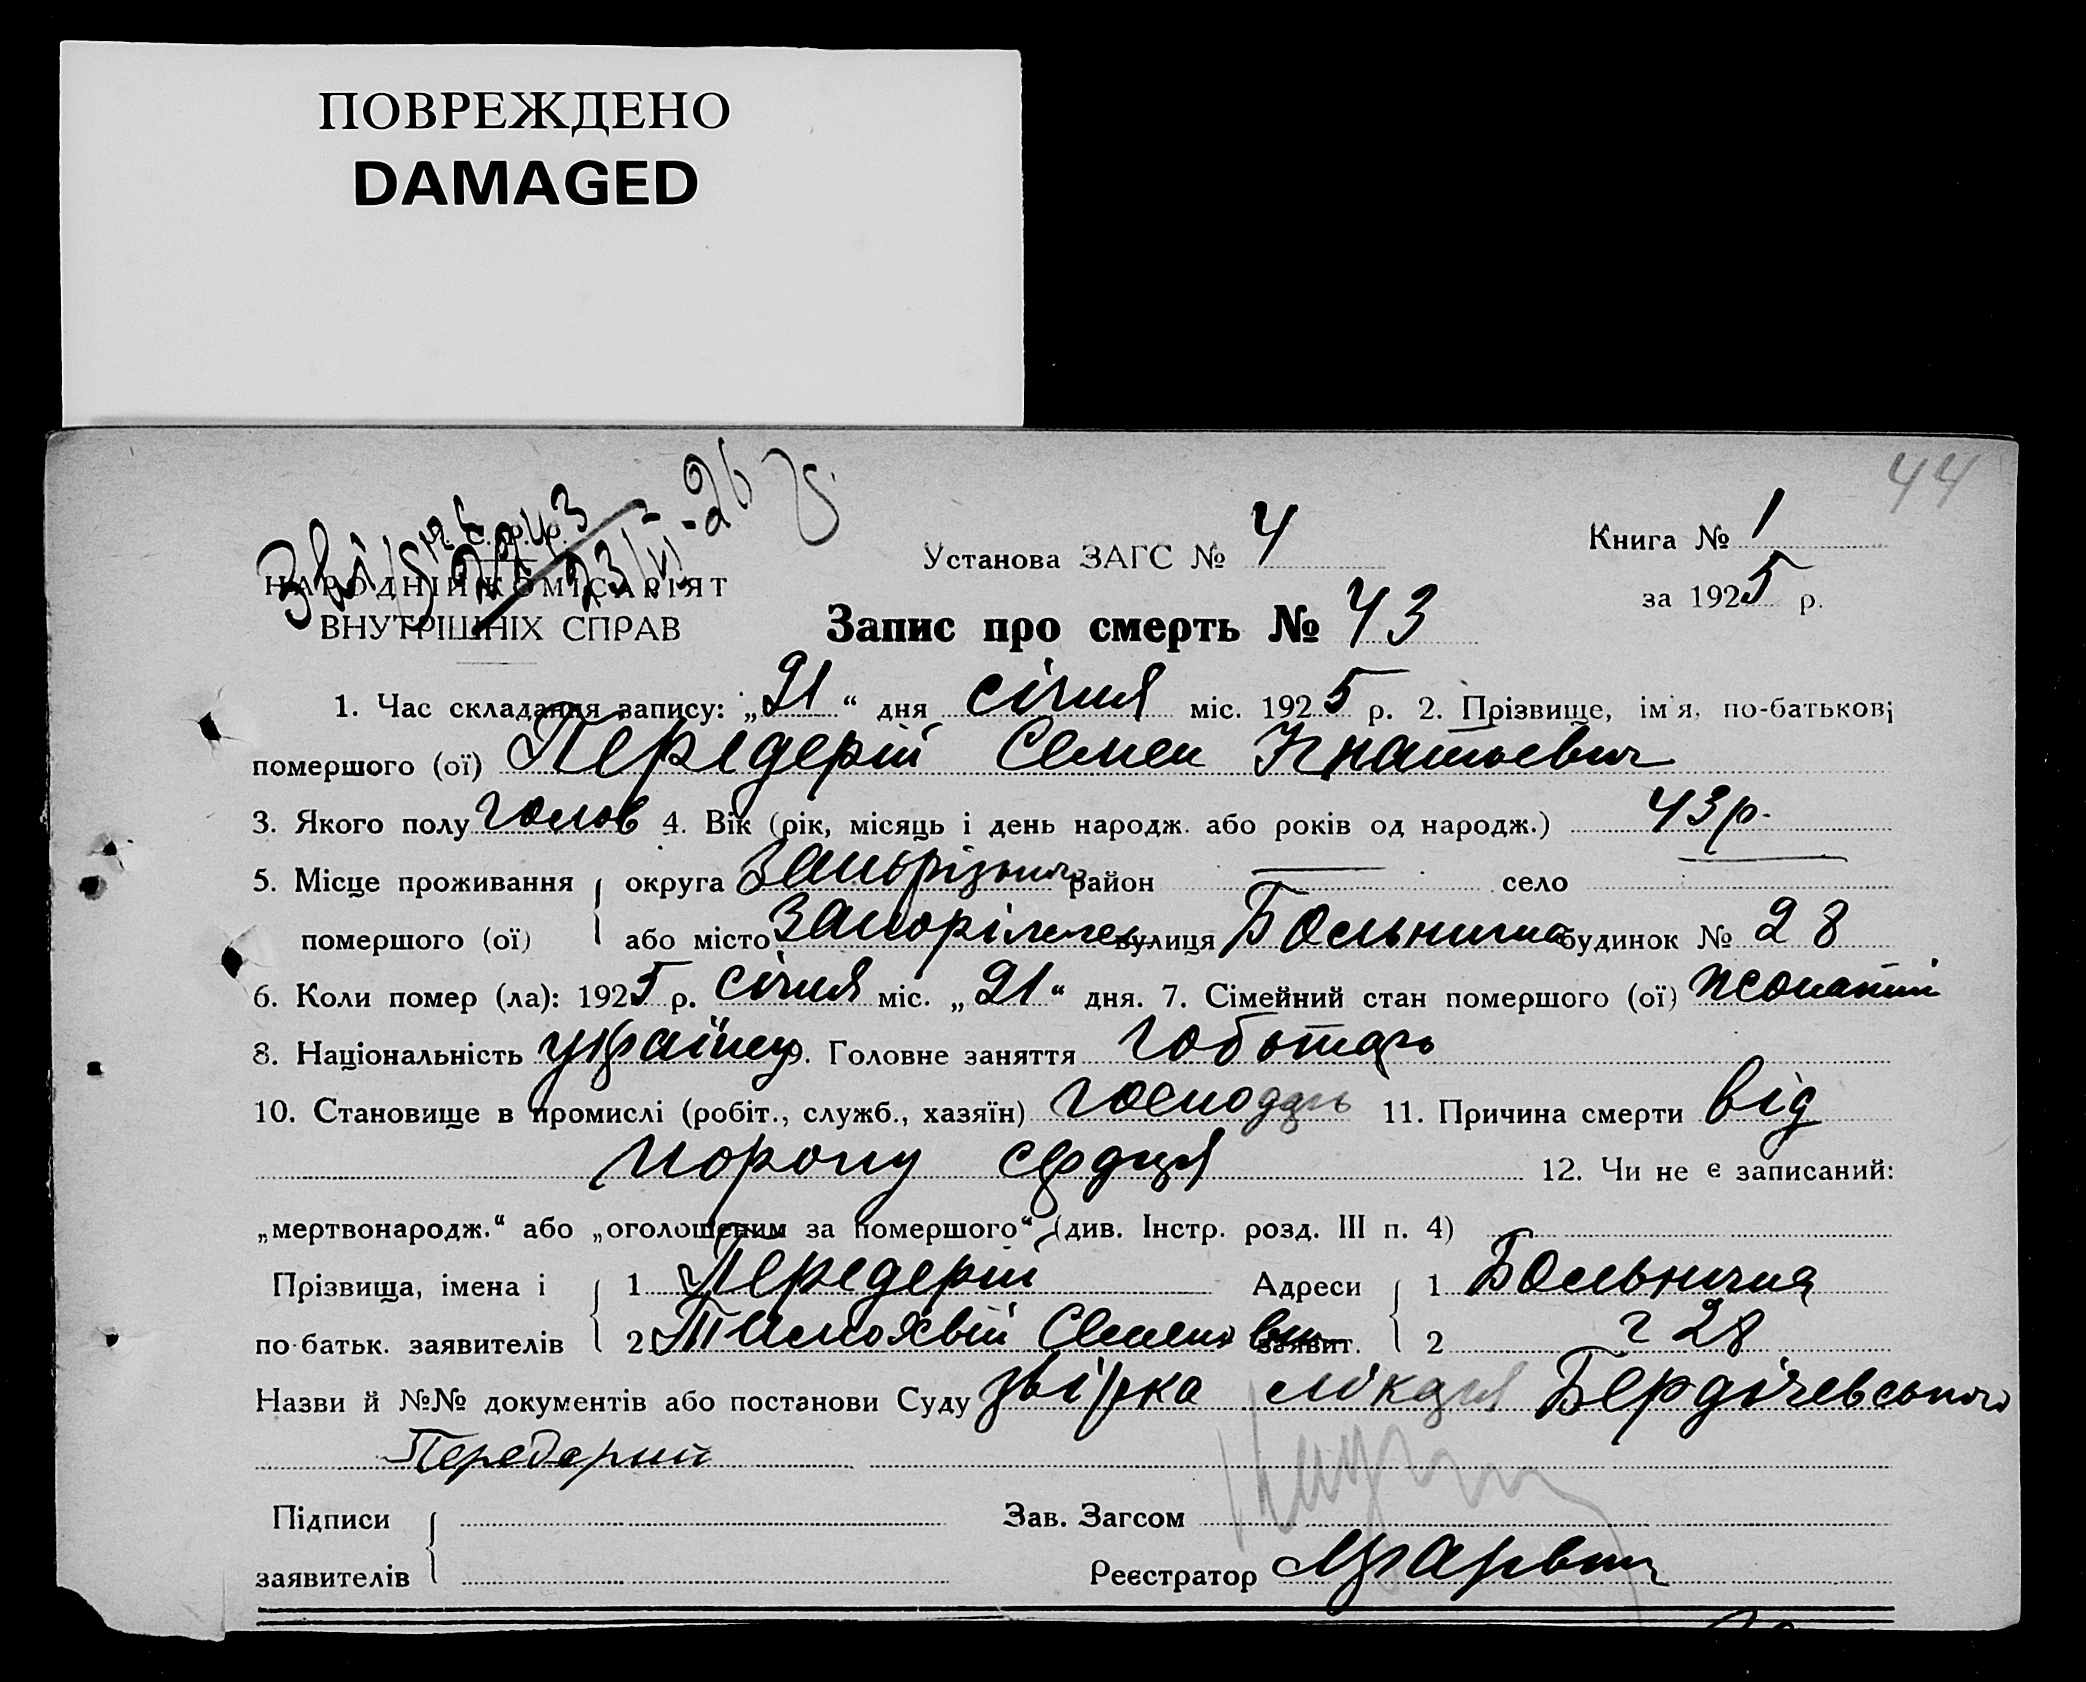 ПОВРЕЖДЕНО
DAMAGED
44
НАРОДНІЙ КОМІСАРІЯТ
ВНУТРІШНІХ СПРАВ
Установа ЗАГС № 4
Книга № 1
за 1925 р.
Запис про смерть № 43
1. Час складання запису: „21“ дня січня міс. 1925 р. 2. Прізвище, ім'я, по-батькові
помершого (ої) Передерій Семен Гнатьевич
3. Якого полу 4. Вік (рік, місяць і день народж. або років од народж.) 43 р.
5. Місце проживання округа Запорізького район — село
помершого (ої) або місто Запоріжже вулиця Больнична будинок № 28
6. Коли помер (ла): 1925 р. січня міс. „21“ дня. 7. Сімейний стан помершого (ої) жонатий
8. Національність українець 9. Головне заняття
10. Становище в промислі (робіт., служб., хазяїн) господарь 11. Причина смерти від
пороку сердця 12. Чи не є записаний:
„мертвонародж.“ або „оголошеним за помершого“ (див. Інстр. розд. III п. 4)
Прізвища, імена і 1 Передерій Адреси 1 Больнична
по-батьк. заявителів 2 Семенович заявит. 2 28
Назви й №№ документів або постанови Суду лікаря Бердічевського
Передерий
Підписи Зав. Загсом
заявителів Реєстратор